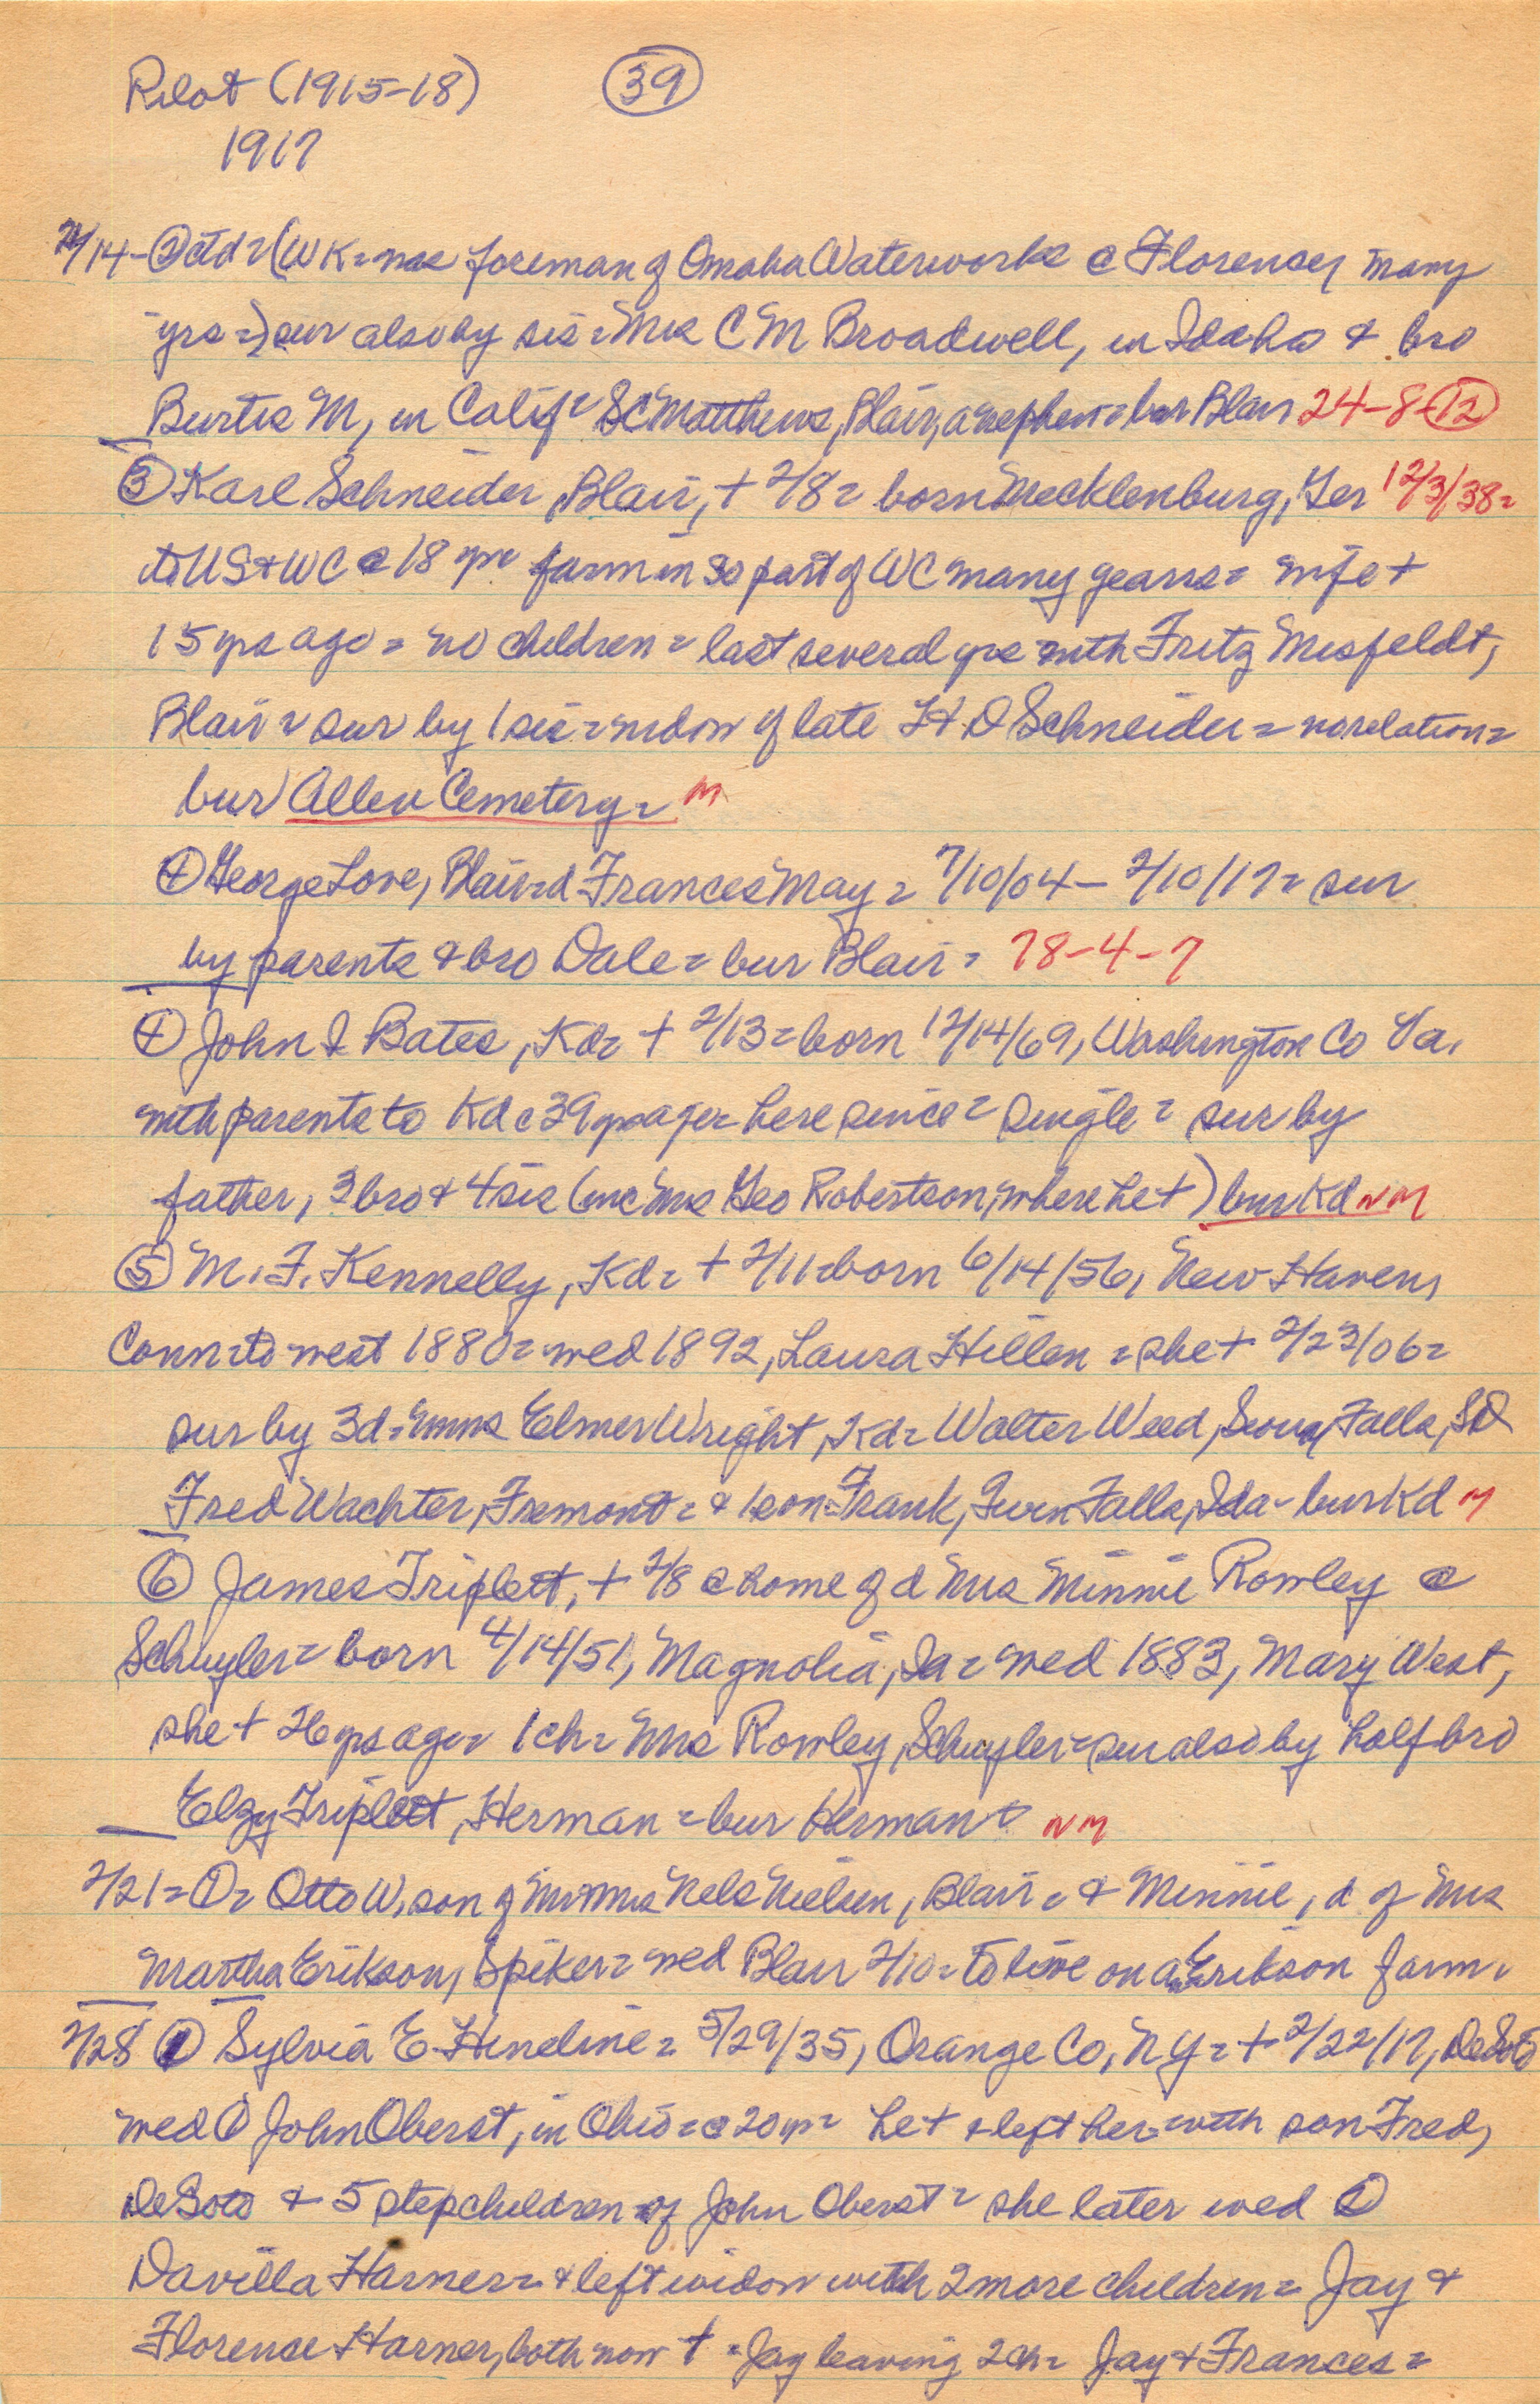 Pilot (1915-18) 39
1917
2/14 - 2 ctd = (WK = was foreman of Omaha Waterworks @ Florence, many
yrs =) sur also by sis = Mrs C M Broadwell, in Idaho & bro
Burtis M, in Calif = SC Matthews, Blair, a nephew = bur Blair 24-8-12
3 Karl Schneider, Blair, + 2/8 = born Mecklenburg, Ger 12/3/38 =
to US & WC @ 18 yrs farm in so part of WC many years = wife +
15 yrs ago = no children = last several yrs with Fritz Misfeldt,
Blair = sur by 1 sis = widow of late H D Schneider = no relation =
bur Allen Cemetery = M
4 George Love, Blair = d Frances May = 7/10/04 - 2/10/17 = sur
by parents & bro Dale = bur Blair = 78-4-7
4 John I Bates, Kd = + 2/13 = born 12/14/69, Washington Co Va.
with parents to Kd c 39 yrs ago = here since = single = sur by
father, 3 bro & 4 sis (inc Mrs Geo Robertson, where he +) bur Kd NM
5 M. F. Kennelly, Kd = + 2/11 = born 6/14/56, New Haven,
Conn = to west 1880 = wed 1892, Laura Hillen = she + 2/23/06 =
sur by 3 d = Mmes Elmer Wright, Kd = Walter Weed, Sioux Falls, SD
Fred Wachter, Fremont = & 1 son Frank, Twin Falls, Ida - bur Kd M
6 James Triplett, + 2/8 @ home of d Mrs Minnie Rowley @
Schuyler = born 4/14/51, Magnolia, Ia = wed 1883, Mary West,
she + 26 yrs ago = 1 ch = Mrs Rowley, Schuyler = sur also by half bro
Elzy Triplett, Herman = bur Herman = NM
2/21 = 1 = Otto W, son of Mr & Mrs Nels Nielsen, Blair = & Minnie, d of Mrs
Martha Erikson, Spiker = wed Blair 2/10 = to live on an Erikson farm =
2/28 1 Sylvia E Hineline = 5/29/35, Orange Co, NY = + 2/22/17, DeSoto
wed 1 John Oberst, in Ohio = @ 20 yrs = he + & left her with son Fred,
DeSoto & 5 stepchildren of John Oberst = she later wed 2
Davilla Harner = & left widow with 2 more children = Jay &
Florence Harner, both now + = Jay leaving 2 ch = Jay & Frances =